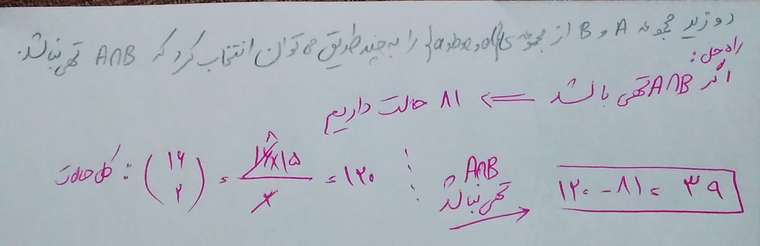 دو زیر مجموعه A و B از مجموعه ی {a,b,c,d} را به چند طریق می توان انتخاب کرد که A∩B تهی نباشد.
راه حل:
اگر A∩B تهی باشد => ۸۱ حالت داریم
کل حالات: (۱۶ ۲) = ۱۶×۱۵ / ۲ = ۱۲۰ ۸
A∩B تهی نباشد → ۱۲۰ - ۸۱ = ۳۹